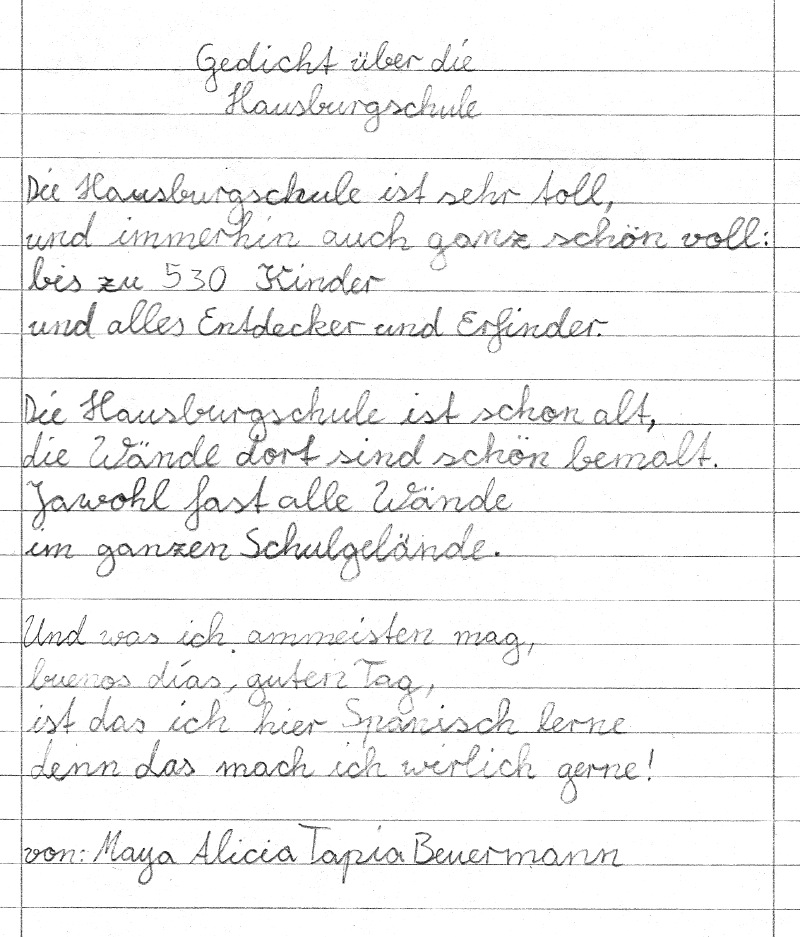 Gedicht über die
Hausburgschule
Die Hausburgschule ist sehr toll,
und immerhin auch ganz schön voll:
bis zu 530 Kinder
und alles Entdecker und Erfinder.
Die Hausburgschule ist schon alt,
die Wände dort sind schön bemalt.
Jawohl fast alle Wände
im ganzen Schulgelände.
Und was ich ammeisten mag,
buenos días, guten Tag,
ist das ich hier Spanisch lerne
denn das mach ich wirlich gerne!
von: Maya Alicia Tapia Beuermann